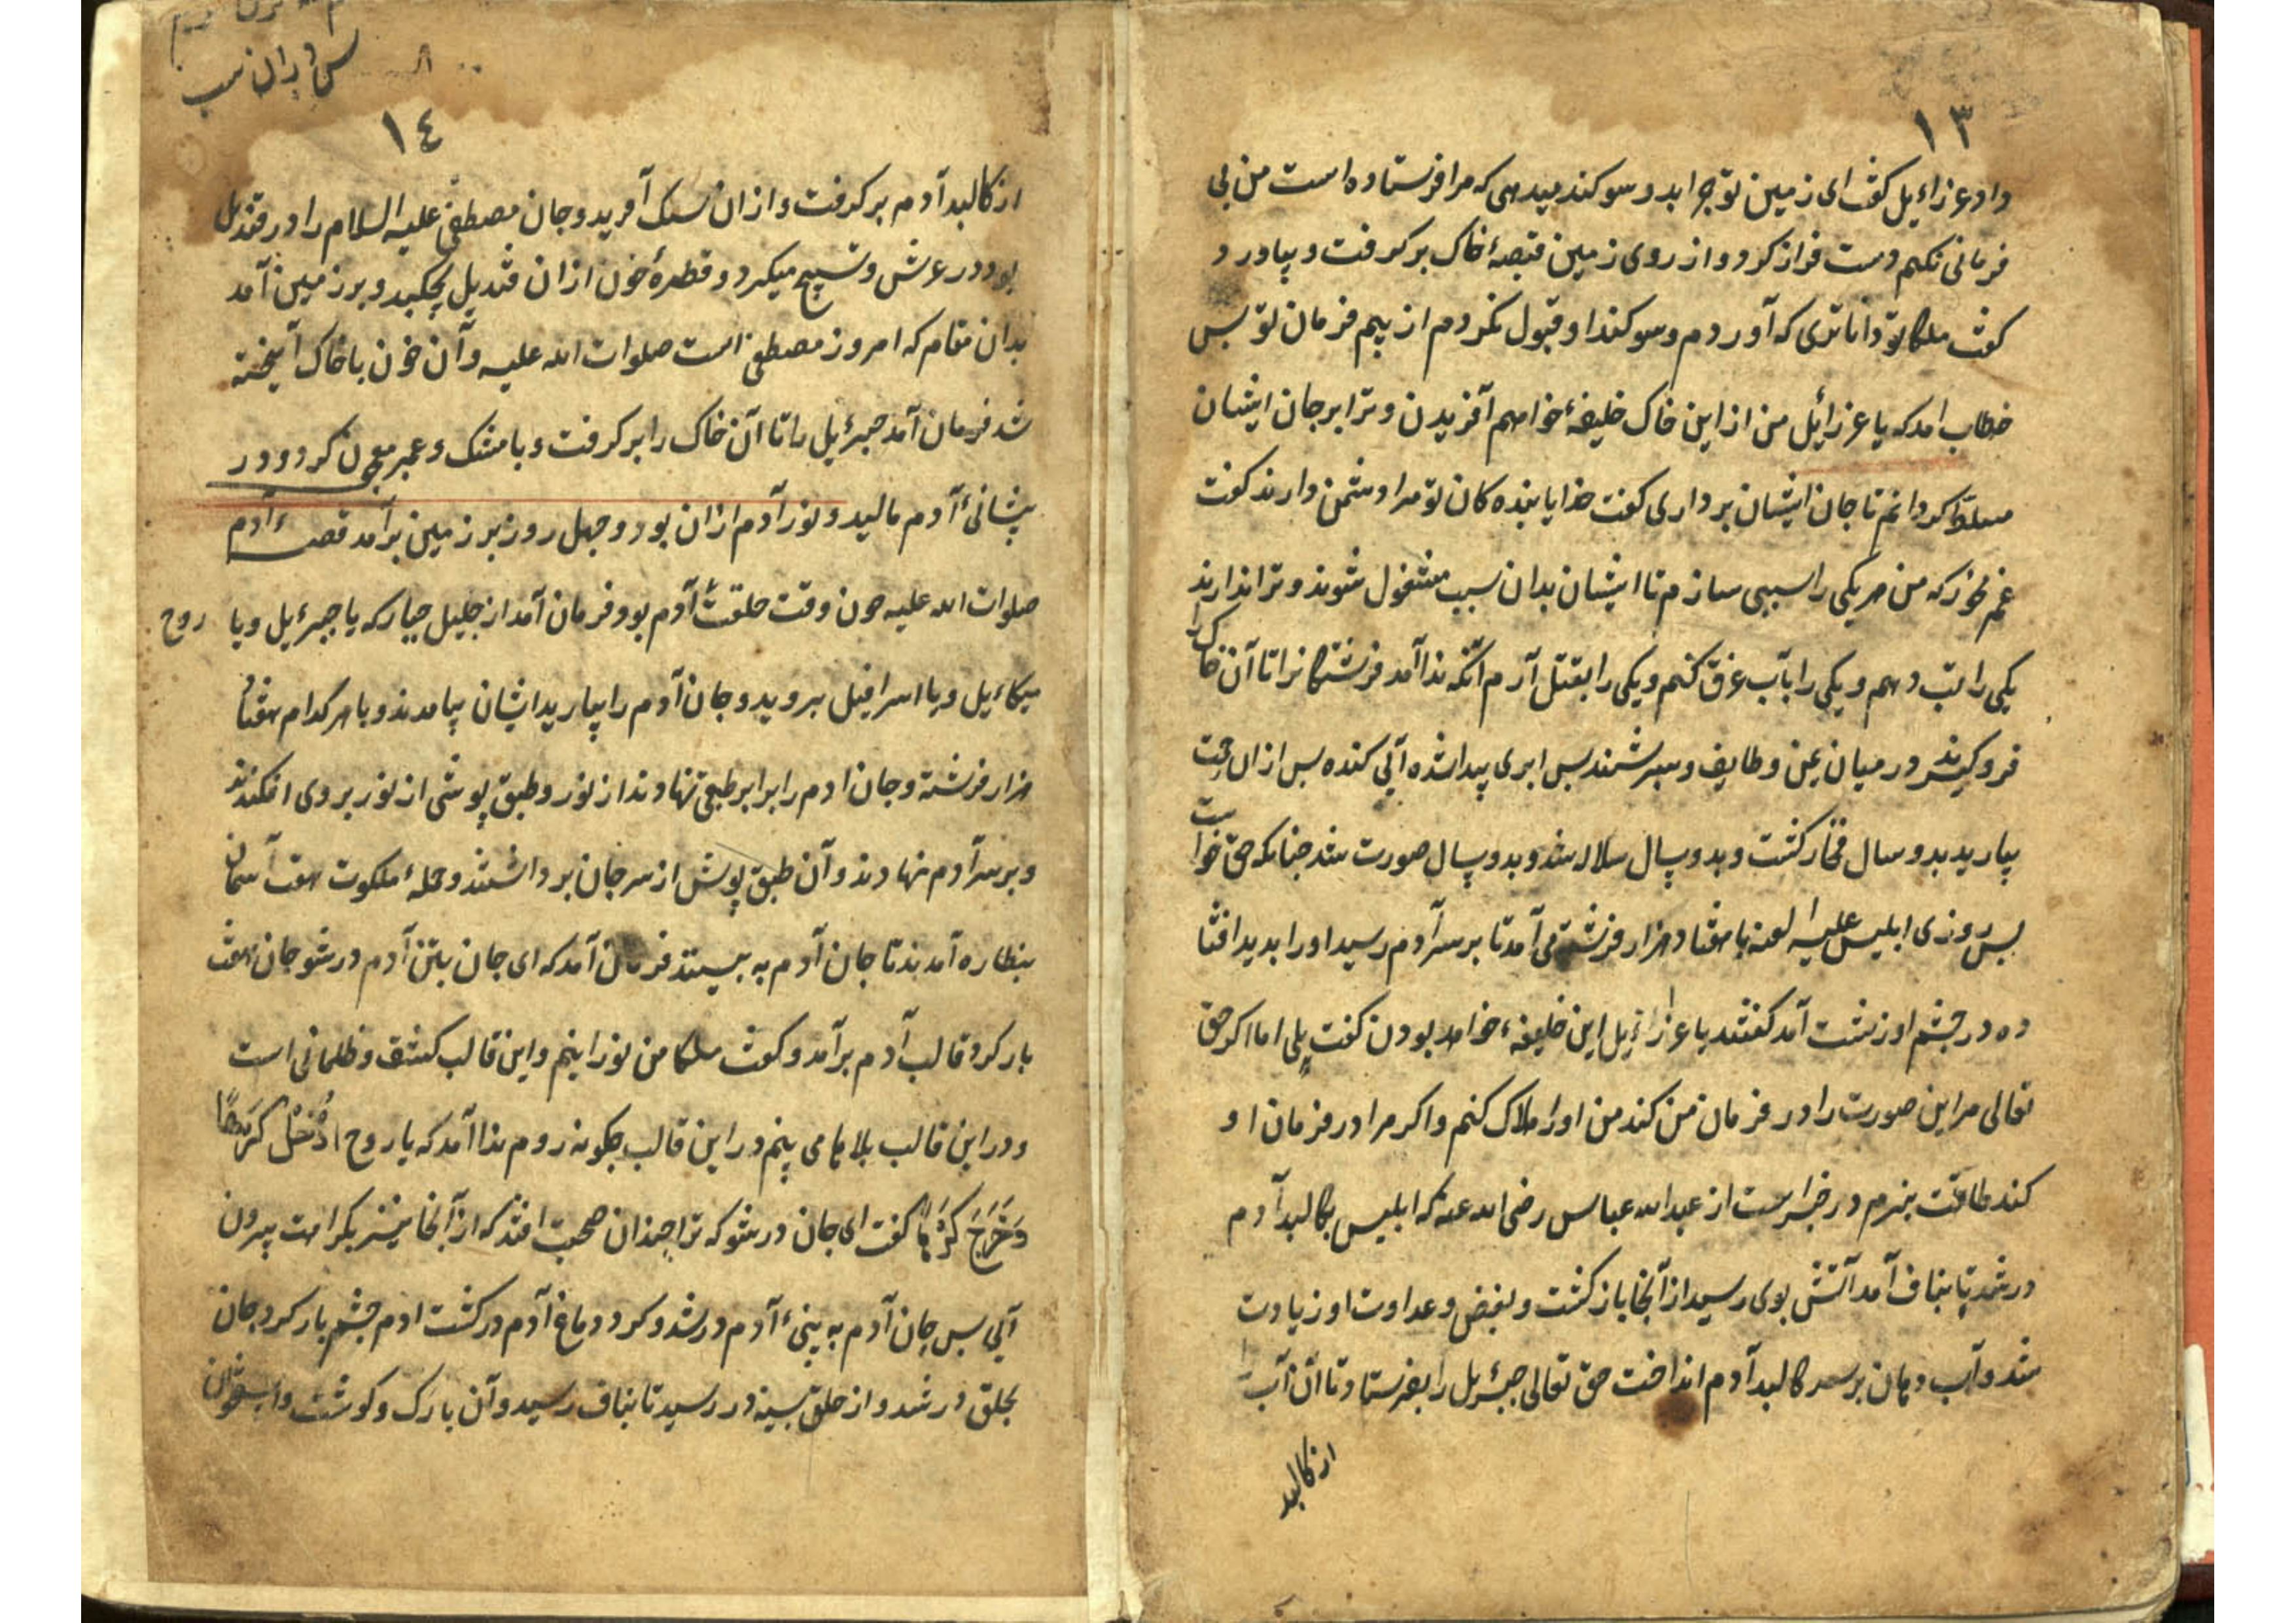 ١٣
داد عزراءیل کفت ای زمین تو چرا بدو سوکند میدهی که مرا فرستاده است من بی
فرمانی نکنم دست فراز کرد و از روی زمین قبضهٔ خاک برکرفت و بیاورد
کفت ملکا تو داناتری که آوردم و سوکند او قبول نکردم از بیم فرمان تو بس
خطاب امد که یا عزرائیل من از این خاک خلیفهٔ خواهم آفریدن و ترا بر جان ایشان
مسلط کردانم تا جان ایشان برداری کفت خدایا بنده کان تو مرا دشمن دارند کفت
غم مخور که من هر یکی را سببی سازم تا ایشان بدان سبب مشغول شوند و ترا ندارند
یکی را تب دهم و یکی را بآب غرق کنم و یکی را بقتل آرم آنکه ندا آمد فرشتکانرا تا آن خاک را
فرو کیرند در میان یمن و طایف و بسرشتند بس ابری پیدا شده آبی کنده بس ازان
بیارید بدو سال فخار کشت و بدو سال سلاله شد و بدو سال صورت شد چنانکه حق خواست
بس روزی ابلیس علیه العنه با هفتاد هزار فرشته می آمد تا بر سر آدم رسید او را بدید افتا
ده در چشم او زشت آمد کفتند یا عزازیل این خلیفهٔ خواهد بودن کفت بلی اما اکر حق
تعالی مر این صورت را در فرمان من کند من او را هلاک کنم و اکر مرا در فرمان او
کند طاقت نبرم در خبر است از عبد الله عباس رضی الله عنه که ابلیس بکالبد آدم
در شد تا بناف آمد آتش بوی رسید از آنجا باز کشت و بغض و عداوت او زیادت
شد و آب دهان بر سر کالبد آدم انداخت حق تعالی جبرئیل را بفرستاد تا آن آب را
از کالبد
١٤
از کالبد آدم برکرفت و ازان سک آفرید و جان مصطفی علیه السلام را در قندیل
بود در عرش و تسبیح میکرد و قطرهٔ خون ازان قندیل بچکید و بر زمین آمد
بدان مقام که امروز مصطفی است صلوات الله علیه و آن خون با خاک آمیخته
شد فرمان آمد جبرئیل را تا آن خاک را برکرفت و با مشک و عنبر معجون کرد و در
پیشانیٔ آدم مالید و نور آدم ازان بود و چهل روز بر زمین برآمد قصهٔ آدم
صلوات الله علیه چون وقت خلقت آدم بود فرمان آمد از جلیل جبار که یا جبرئیل و یا
روح
میکاءیل و یا اسرافیل بروید و جان آدم را بیارید ایشان بیامدند و با هر کدام هفتاد
هزار فرشته و جان ادم را برابر طبقی نهادند از نور و طبق پوشی از نور بر وی افکندند
و بر سر آدم نهادند و آن طبق پوش از سر جان برداشتند و جملهٔ ملکوت هفت آسمان
بنظاره آمدند تا جان آدم به بینند فرمان آمد که ای جان بتن آدم در شو جان هفت
بار کرد قالب آدم برآمد و کفت ملکا من نورانیم و این قالب کثیف و ظلمانی است
و در این قالب بلاها می بینم در این قالب چکونه روم ندا آمد که یا روح اُدْخُلْ کَرْهًا
وَخَرَجَ کَرْهًا کفت ای جان در شو که ترا چندان صحبت افتد که از آنجا نیز بکراهت بیرون
آیی بس جان آدم به بینیٔ آدم در شد و کرد دماغ آدم در کشت ادم چشم باز کرد جان
بحلق در شد و از حلق بسینه در رسید تا بناف رسید و آن با رک و کوشت و استخوان